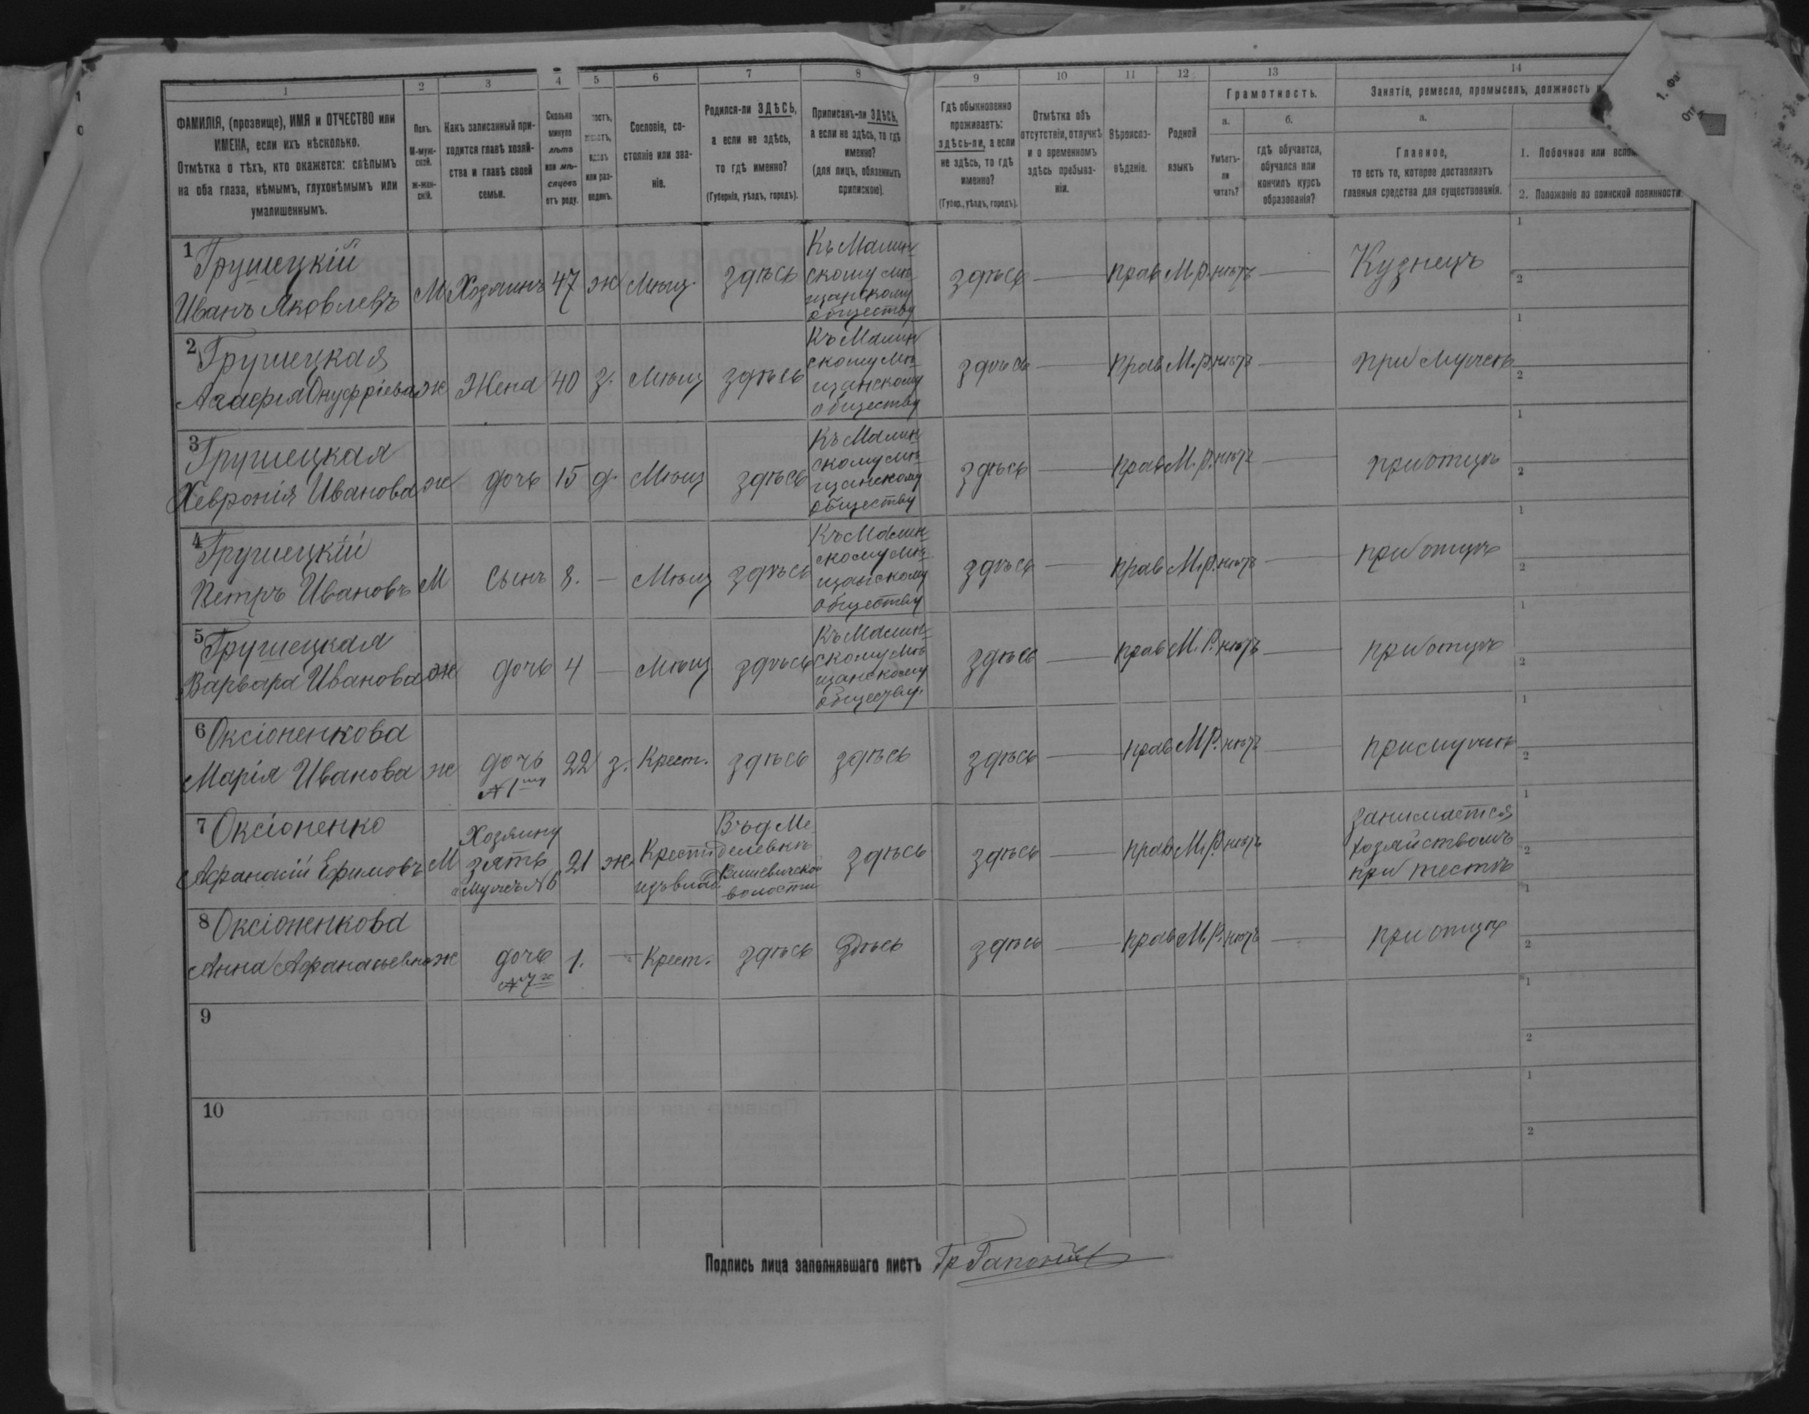 1 2 3 4 5 6 7 8 9 10 11 12 13 14
ФАМИЛІЯ, (прозвище), ИМЯ и ОТЧЕСТВО или
ИМЕНА, если ихъ нѣсколько.
Отмѣтка о тѣхъ, кто окажется: слѣпымъ
на оба глаза, нѣмымъ, глухонѣмымъ или
умалишеннымъ.
Полъ.
М-муж-
ской.
ж-жен-
скій.
Какъ записанный при-
ходится главѣ хозяй-
ства и главѣ своей
семьи.
Сколько
минуло
лѣтъ
или мѣ-
сяцевъ
отъ роду.
или раз-
веденъ.
Сословіе, со-
стояніе или зва-
ніе.
Родился-ли ЗДѢСЬ,
а если не здѣсь,
то гдѣ именно?
(Губернія, уѣздъ, городъ).
Приписанъ-ли ЗДѢСЬ,
а если не здѣсь, то гдѣ
именно?
(для лицъ, обязанныхъ
припискою).
Гдѣ обыкновенно
проживаетъ:
здѣсь-ли, а если
не здѣсь, то гдѣ
именно?
(Губер., уѣздъ, городъ).
Отмѣтка объ
отсутствіи, отлучкѣ
и о временномъ
здѣсь пребыва-
ніи.
Вѣроиспо-
вѣданіе.
Родной
языкъ
Грамотность.
а.
Умѣетъ-
ли
читать?
б.
гдѣ обучается,
обучался или
кончилъ курсъ
образованія?
Занятіе, ремесло, промыселъ, должность
а.
Главное,
то есть то, которое доставляетъ
главныя средства для существованія.
1. Побочное или
2. Положеніе по воинской повинности.
1 Грушецкій
Иванъ Яковлевъ М Хозяинъ 47 ж Мѣщ. здѣсь Къ Малин-
скому мѣ-
щанскому
обществу здѣсь — прав М.Р. нѣтъ — Кузнецъ
1
2
2 Грушецкая
Онуфріева ж Жена 40 з. Мѣщ здѣсь Къ Малин
скому мѣ-
щанскому
обществу здѣсь — прав М.Р. нѣтъ — при мужѣ
1
2
3 Грушецкая
Хевронія Иванова ж дочь 15 д. Мѣщ здѣсь Къ Малин
скому мѣ-
щанскому
обществу здѣсь — прав М.Р. нѣтъ — при отцѣ
1
2
4 Грушецкій
Петръ Ивановъ М Сынъ 8. — Мѣщ здѣсь Къ Малин-
скому мѣ-
щанскому
обществу здѣсь — прав М.Р. нѣтъ — при отцѣ
1
2
5 Грушецкая
Варвара Иванова ж дочь 4 — Мѣщ здѣсь Къ Малин-
скому мѣ
щанскому
обществу здѣсь — прав М.Р. нѣтъ — при отцѣ
1
2
6 Оксіоненкова
Марія Иванова ж дочь
№ 1 22 з. Крест. здѣсь здѣсь здѣсь — прав М.Р. нѣтъ — при мужѣ
1
2
7 Оксіоненко
Афанасій Ефимовъ М Хозяину
зять
мужъ № 6 21 ж. Крест.
изъ влад.
волости здѣсь здѣсь — прав М.Р. нѣтъ занимается
хозяйствомъ
при тестѣ
1
2
8 Оксіоненкова
Анна Афанасьевна ж дочь
№ 7 1. — Крест. здѣсь Здѣсь здѣсь — прав М.Р. нѣтъ — при отцѣ
1
2
9
1
2
10
1
2
Подпись лица заполнявшаго листъ